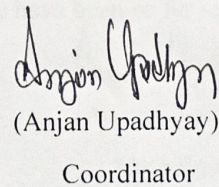 Anjan Upadhyay
(Anjan Upadhyay)
Coordinator